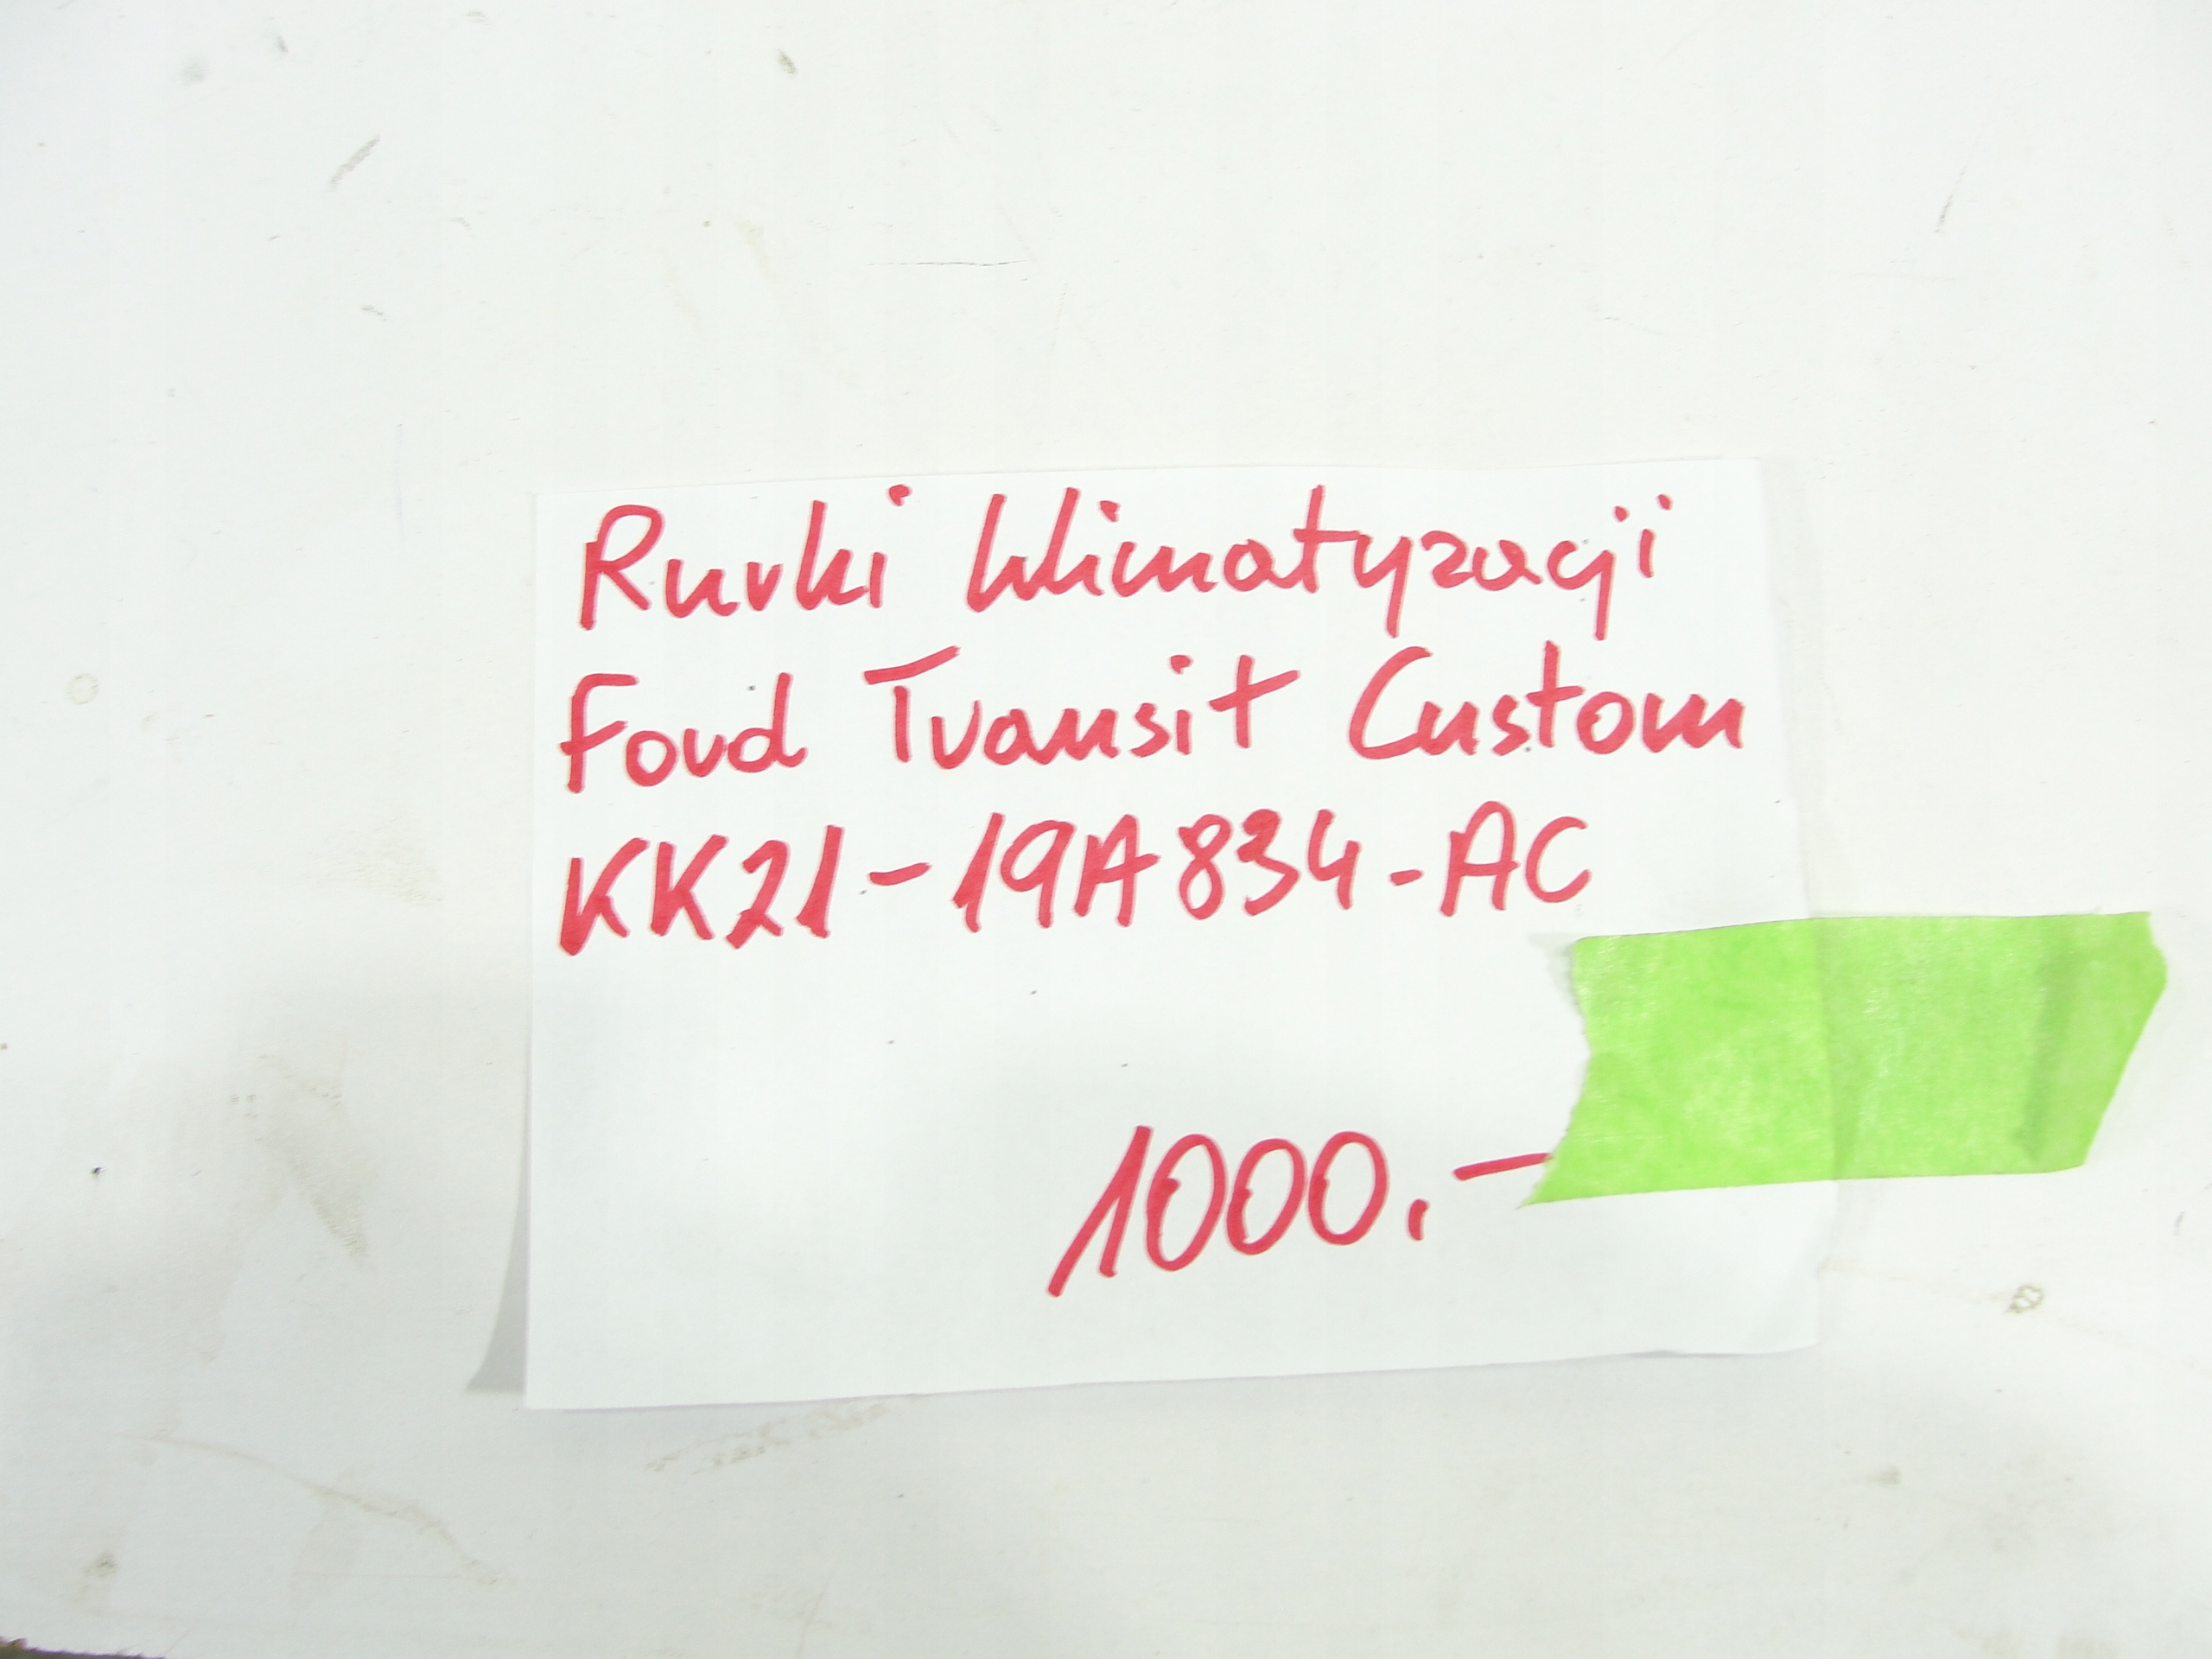 Rurki klimatyzacji
Ford Transit Custom
KK21-19A834-AC
1000.-